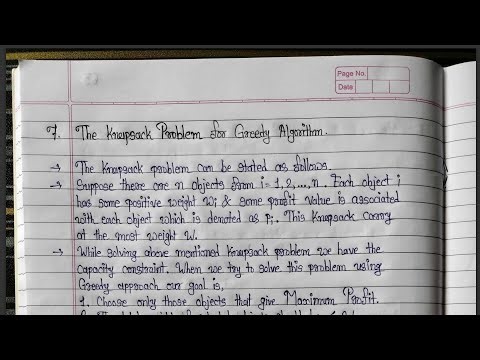 Page No.
Date
7. The Knapsack Problem for Greedy Algorithm.
→ The Knapsack problem can be stated as follows.
→ Suppose there are n objects from i = 1,2,...,n. Each object i
has some positive weight Wi & some profit value is associated
with each object which is denoted as Pi. This Knapsack carry
at the most weight W.
→ While solving above mentioned Knapsack problem we have the
capacity constraint. When we try to solve this problem using
Greedy approach our goal is,
1. Choose only those objects that give Maximum Profit.